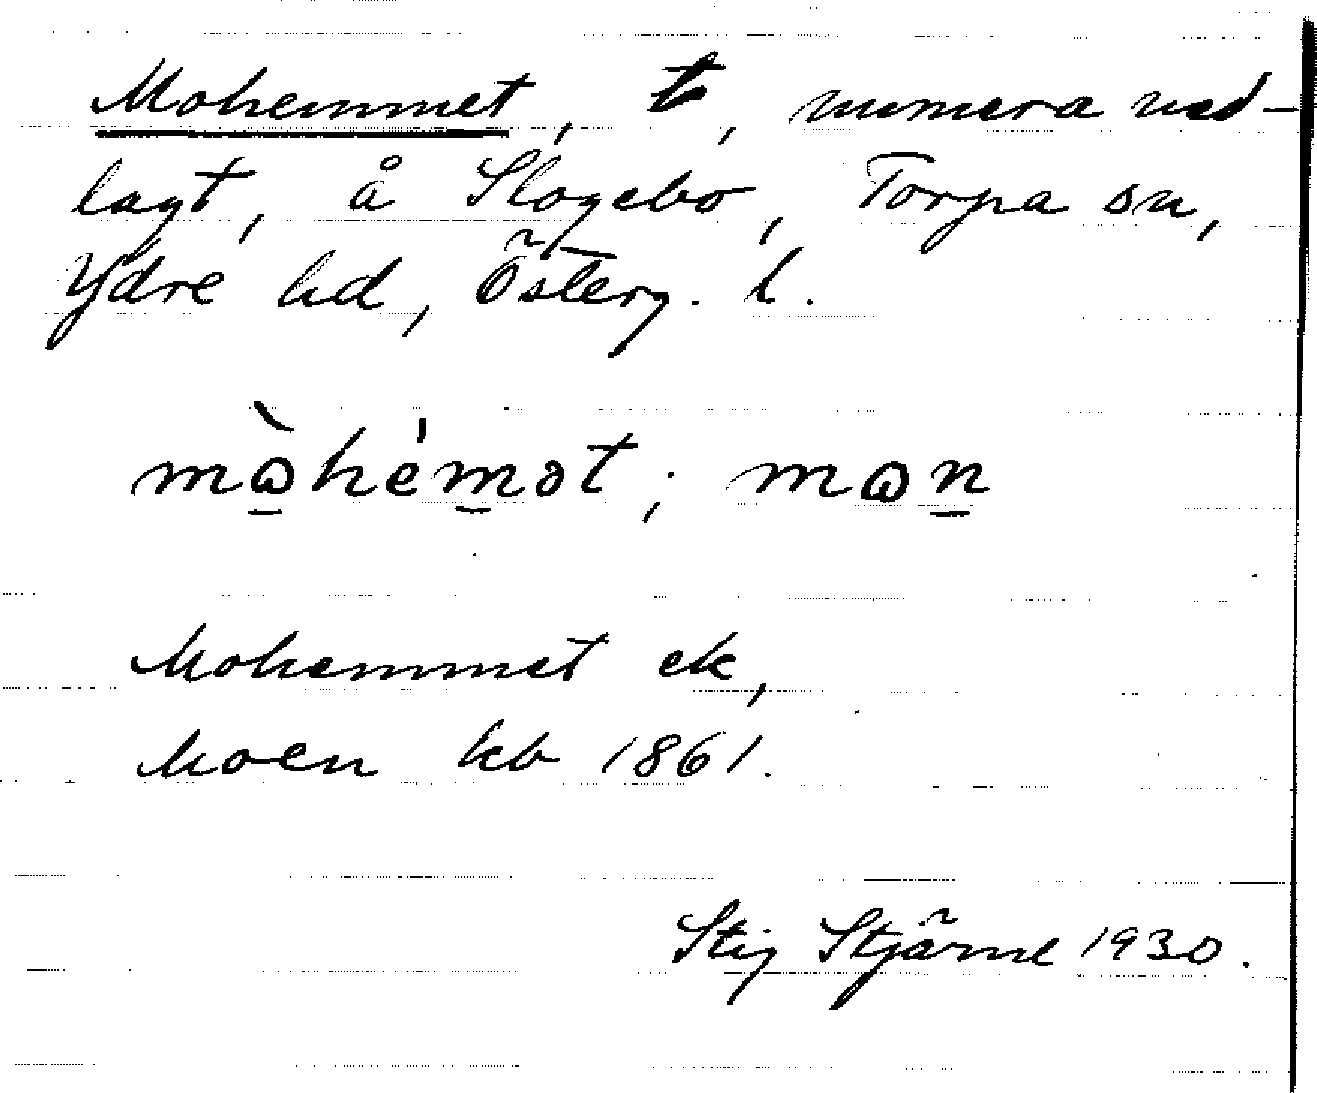 Mohemmet, t, numera ned-
lagt, å Slogebo, Torpa sn,
Ydre hd, Österg. l.
mὼhémot; mωn
Mohemmet ek,
Moen kb 1861.
Stig Stjärne 1930.